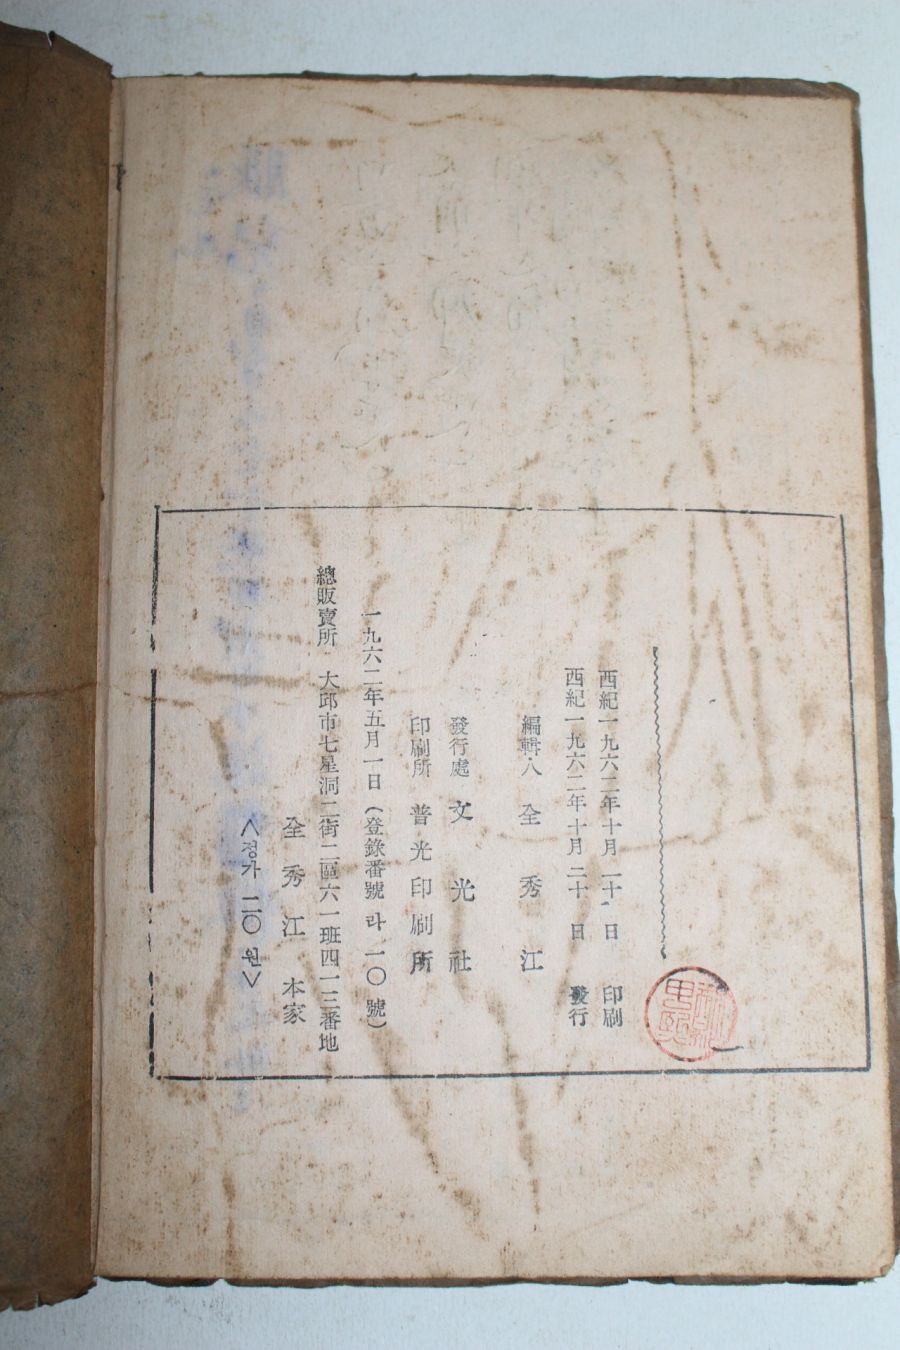 西紀一九六二年十月 二十 日 印刷
西紀一九六二年十月 二十 日 發行
編輯人 全秀江
發行處 文光社
印刷所 普光印刷所
一九六二年五月一日(登錄番號 라 一〇 號)
總販賣所 大邱市七星洞二街二區六一班四一三番地
全秀江 本家
<정가 二〇 원>